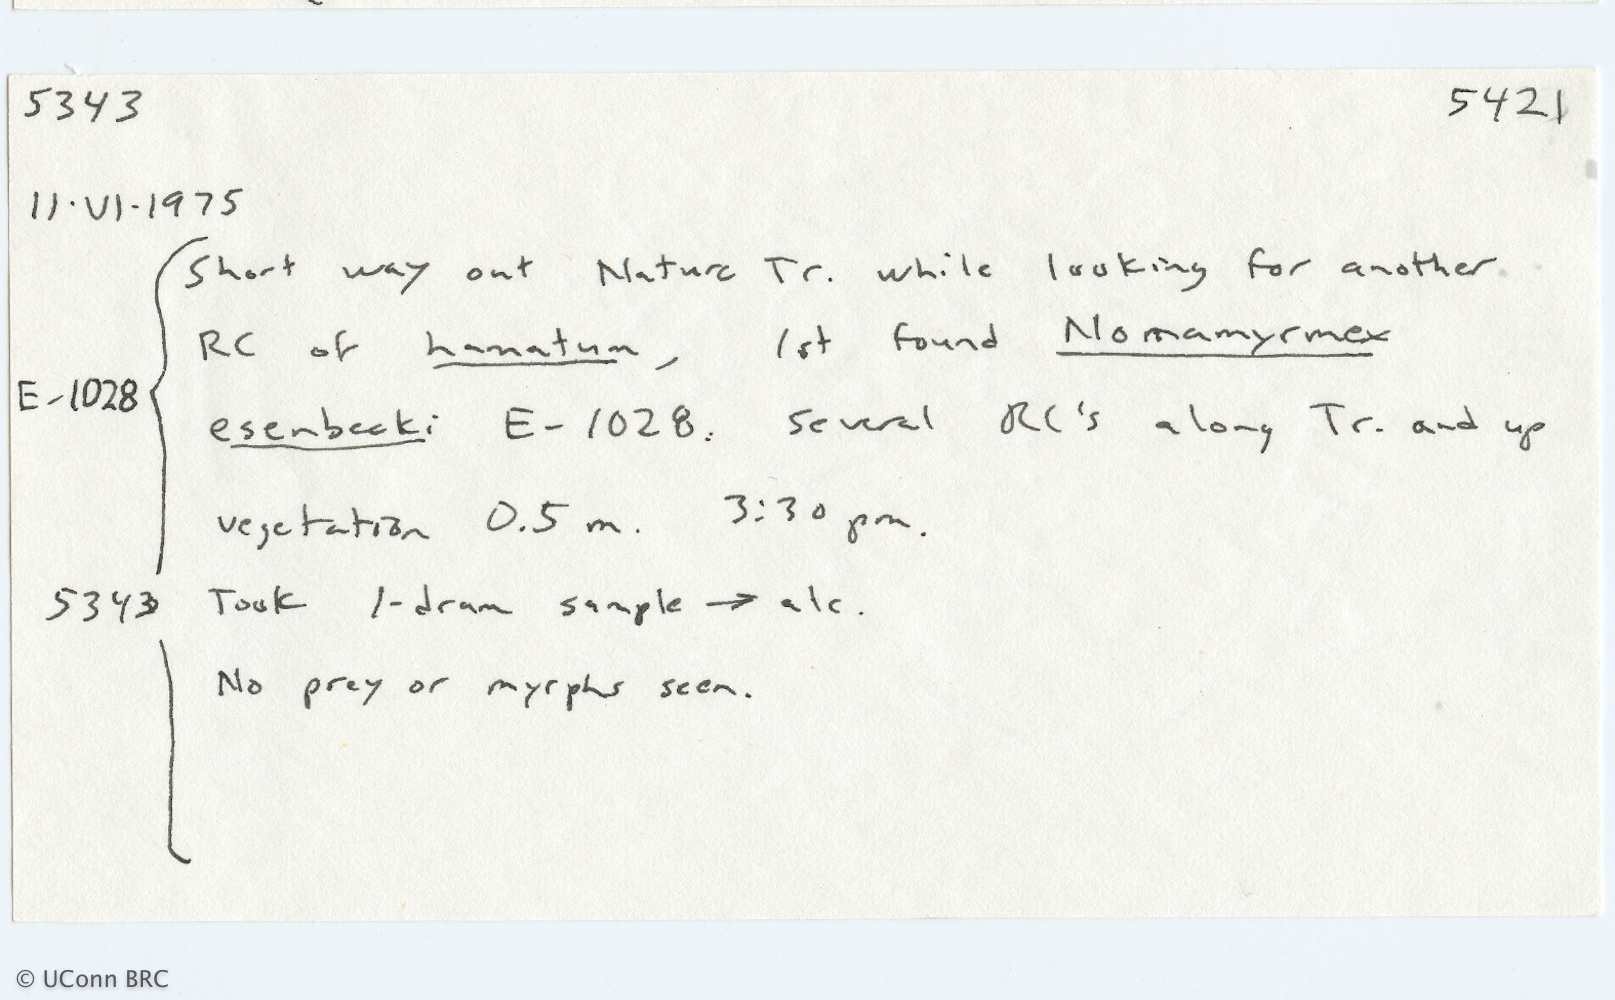 5343 5421
11·VI·1975
Short way out Nature Tr. while looking for another
RC of hamatum, 1st found Nomamyrmex
E-1028
esenbecki E-1028. Several RC's along Tr. and up
vegetation 0.5 m. 3:30 pm.
5343 Took 1-dram sample → alc.
No prey or myrphs seen.
© UConn BRC